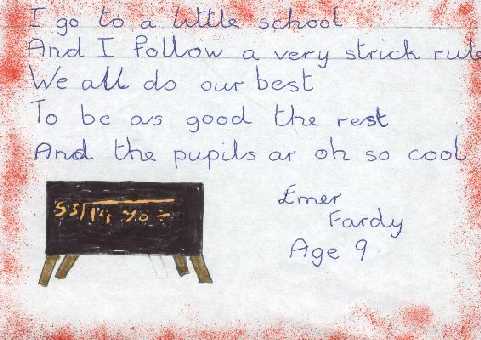 I go to a little school
And I follow a very strick rule
We all do our best
To be as good the rest
And the pupils ar oh so cool
Emer
Fardy
Age 9